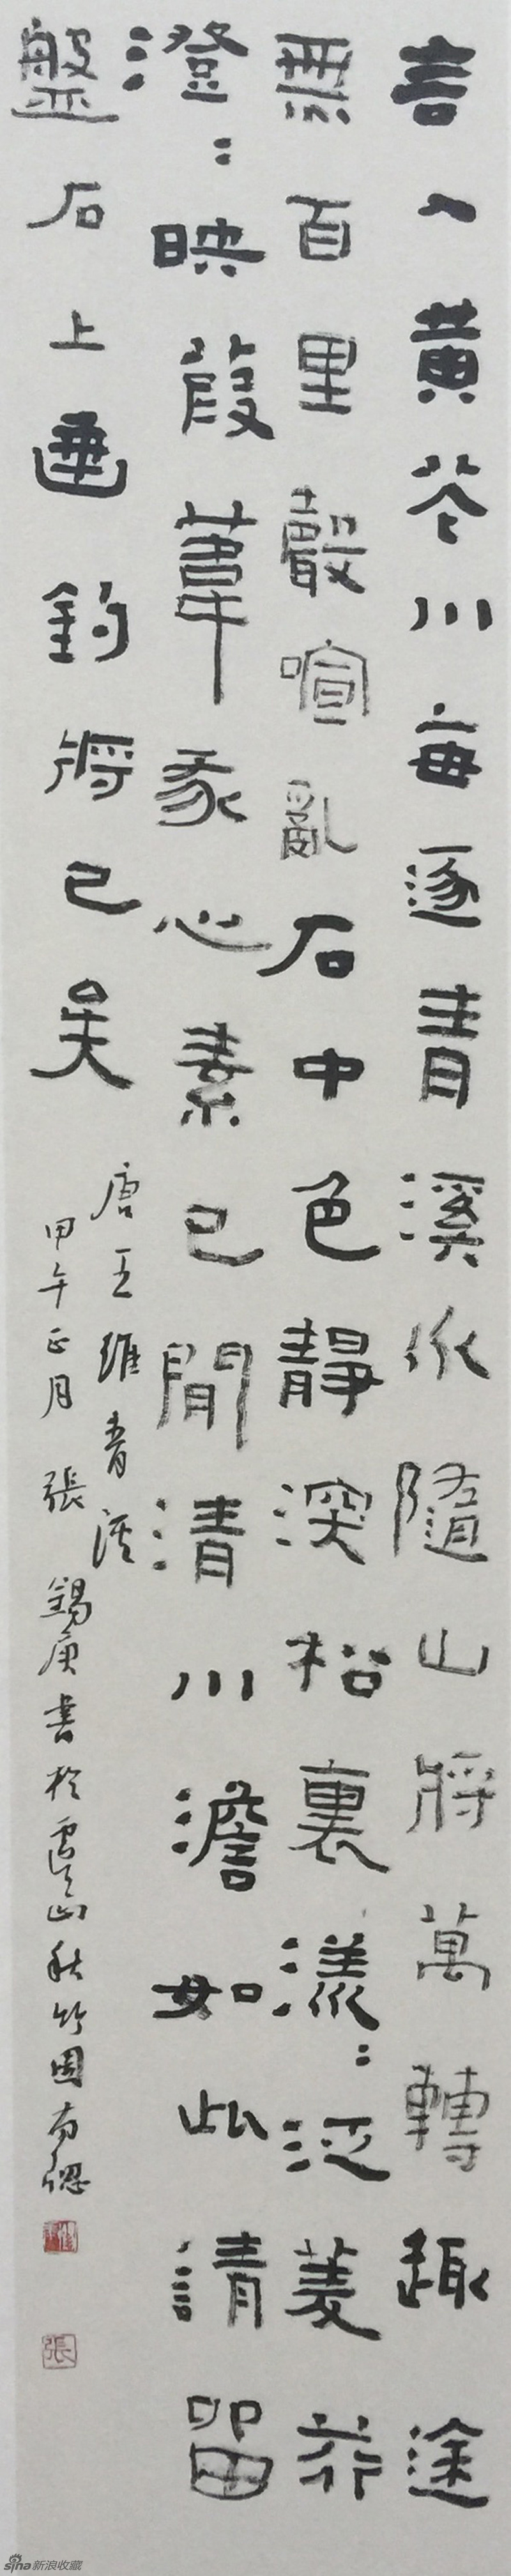 言入黄花川每逐青溪水隨山將萬轉趣途
無百里聲喧亂石中色靜深松裏漾:泛菱荇
澄:映葭葦我心素已閒清川澹如此請留
盤石上垂釣將已矣
唐王維青溪
甲午正月張錫庚書於虞山秋竹園南窗
張
sina新浪收藏